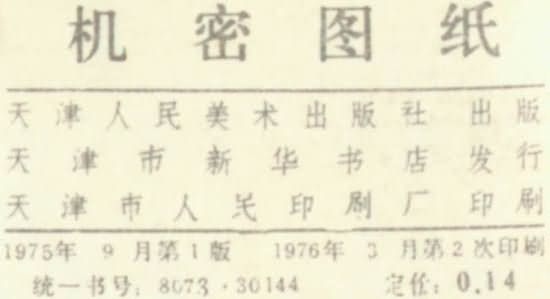 机密图纸
天津人民美术出版社出版
天津市新华书店发行
天津市人民印刷厂印刷
1975年 9 月第1版 1976年 3 月第2次印刷
统一书号：8073·30144 定价：0.14